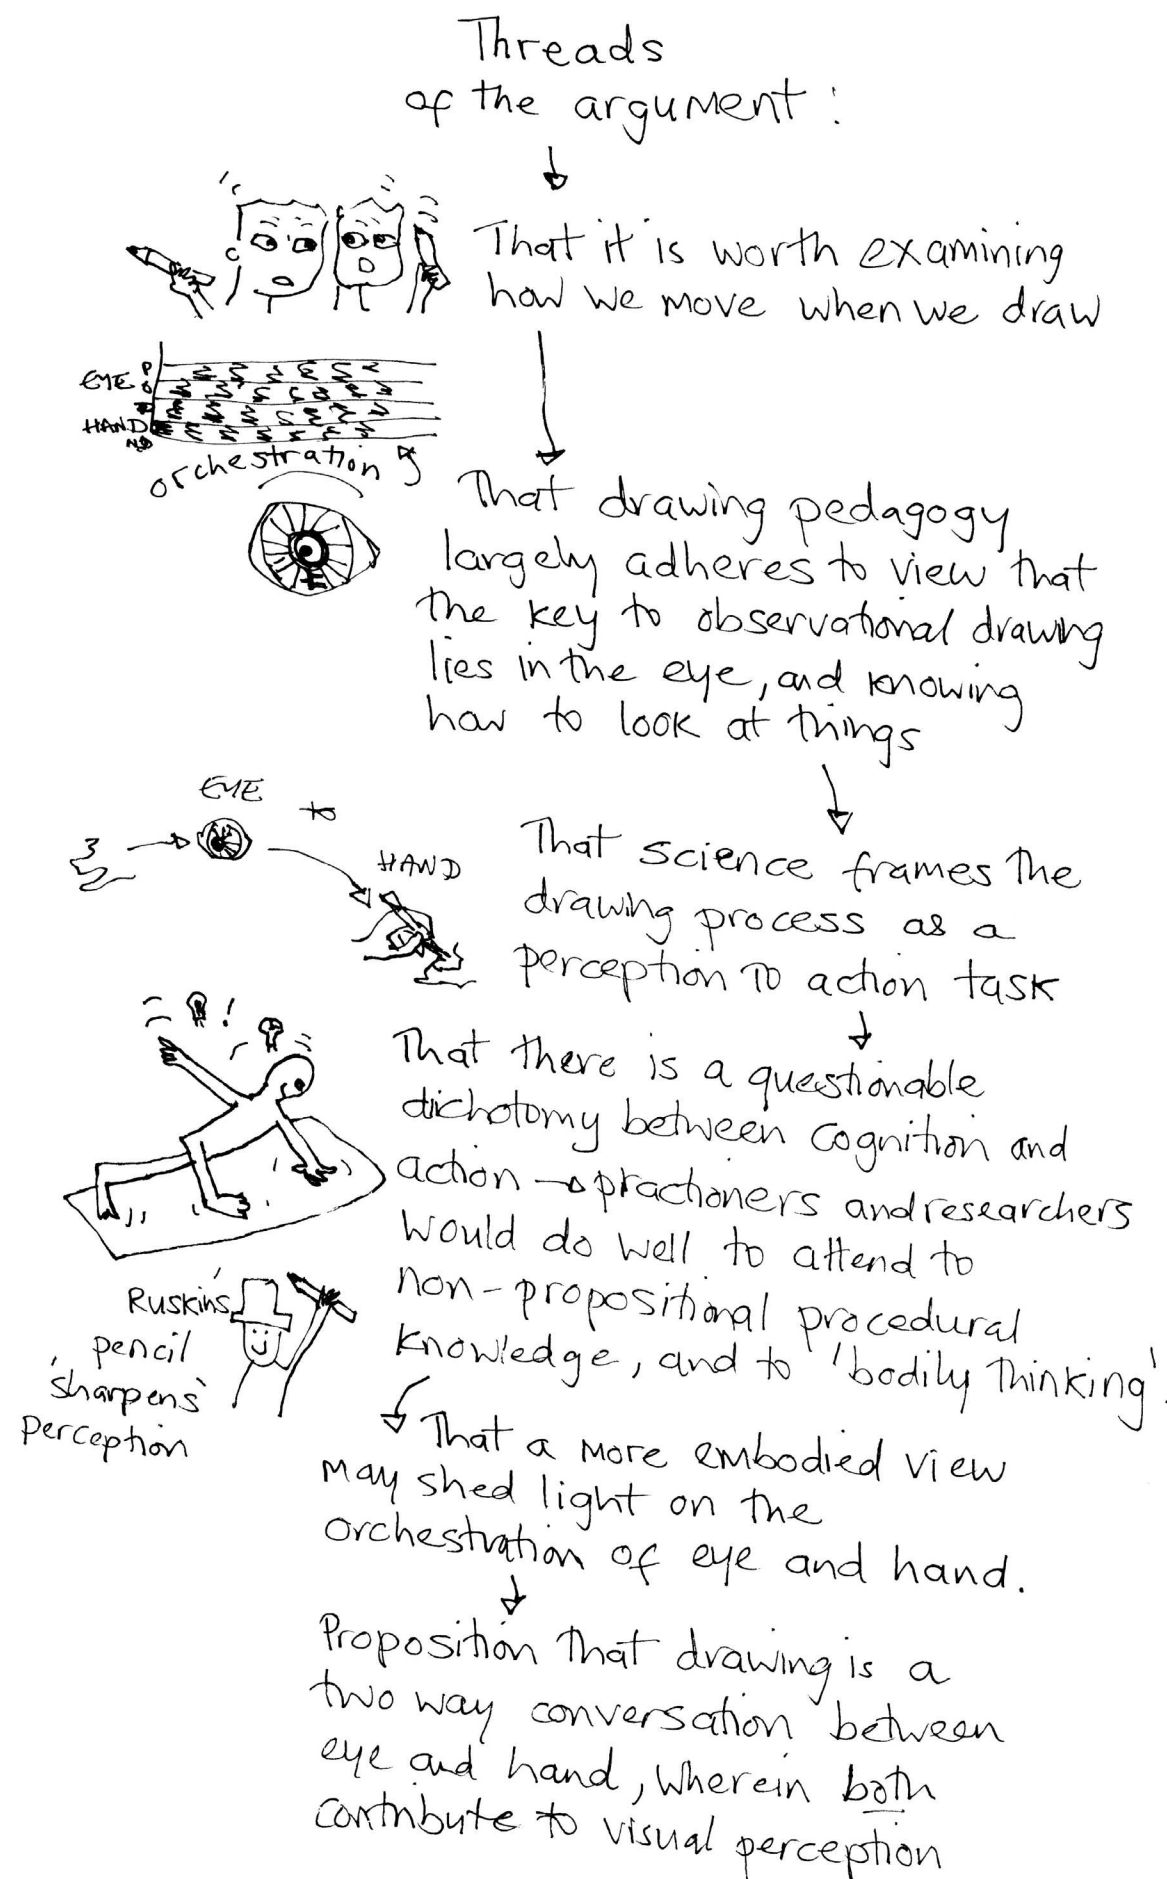 Threads
of the argument :
That it is worth examining
how we move when we draw
EYE
HAND
orchestration
That drawing pedagogy
largely adheres to view that
the key to observational drawing
lies in the eye, and knowing
how to look at things
EYE to
HAND
That science frames the
drawing process as a
perception TO action task
That there is a questionable
dichotomy between cognition and
action → practioners and researchers
would do well to attend to
non-propositional procedural
knowledge, and to 'bodily Thinking'.
Ruskin's
pencil
'sharpens'
perception
That a more embodied view
may shed light on the
orchestration of eye and hand.
Proposition That drawing is a
two way conversation between
eye and hand, wherein both
contribute to visual perception